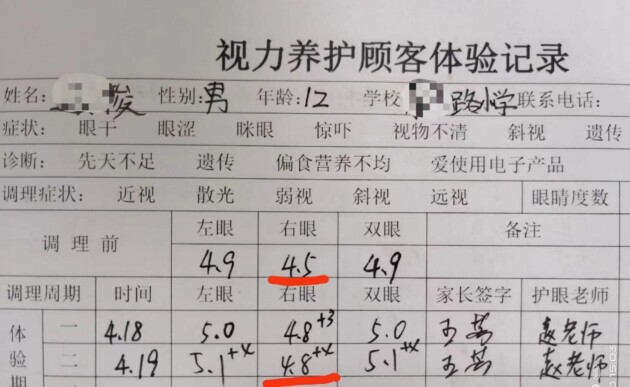 视力养护顾客体验记录
姓名: 俊 性别: 男 年龄: 12 学校 路小学 联系电话:
症状: 眼干 眼涩 眯眼 惊吓 视物不清 斜视 遗传
诊断: 先天不足 遗传 偏食营养不均 爱使用电子产品
调理症状: 近视 散光 弱视 斜视 远视 眼睛度数
调理前 左眼 右眼 双眼 备注
4.9 4.5 4.9
调理周期 时间 左眼 右眼 双眼 家长签字 护眼老师
体验期 一 4.18 5.0 4.8+3 5.0 赵老师
二 4.19 5.1+x 4.8+x 5.1+x 赵老师